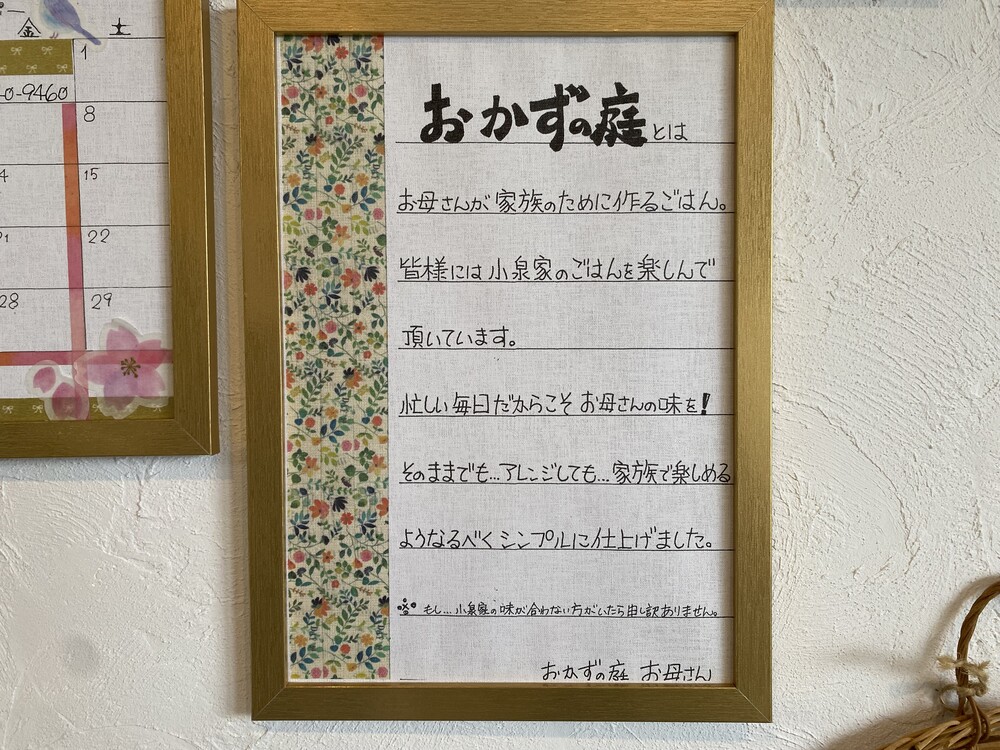 金 土
1
0-9460
8
4 15
21 22
28 29
おかずの庭とは
お母さんが家族のために作るごはん。
皆様には小泉家のごはんを楽しんで
頂いています。
忙しい毎日だからこそお母さんの味を!
そのままでも…アレンジしても…家族で楽しめる
ようなるべくシンプルに仕上げました。
※もし…小泉家の味が合わない方がいたら申し訳ありません。
おかずの庭 お母さん